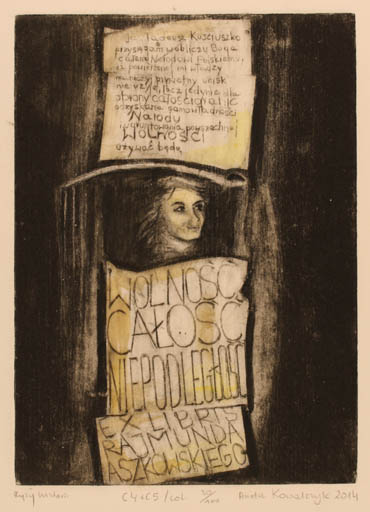 Ja, Tadeusz Kościuszko
przysięgam w obliczu Boga
całemu Narodowi Polskiemu,
iż powierzonej mi władzy
na niczyj prywatny ucisk
nie użyję, lecz jedynie dla
obrony całości granic
odzyskania samowładności
Narodu
i ugruntowania powszechnej
Wolności
używać będę
WOLNOŚĆ
CAŁOŚĆ
NIEPODLEGŁOŚĆ
EX LIBRIS
RAJMUNDA
ASZKOWSKIEGO
C4+C5/col. Kowalczyk 2014